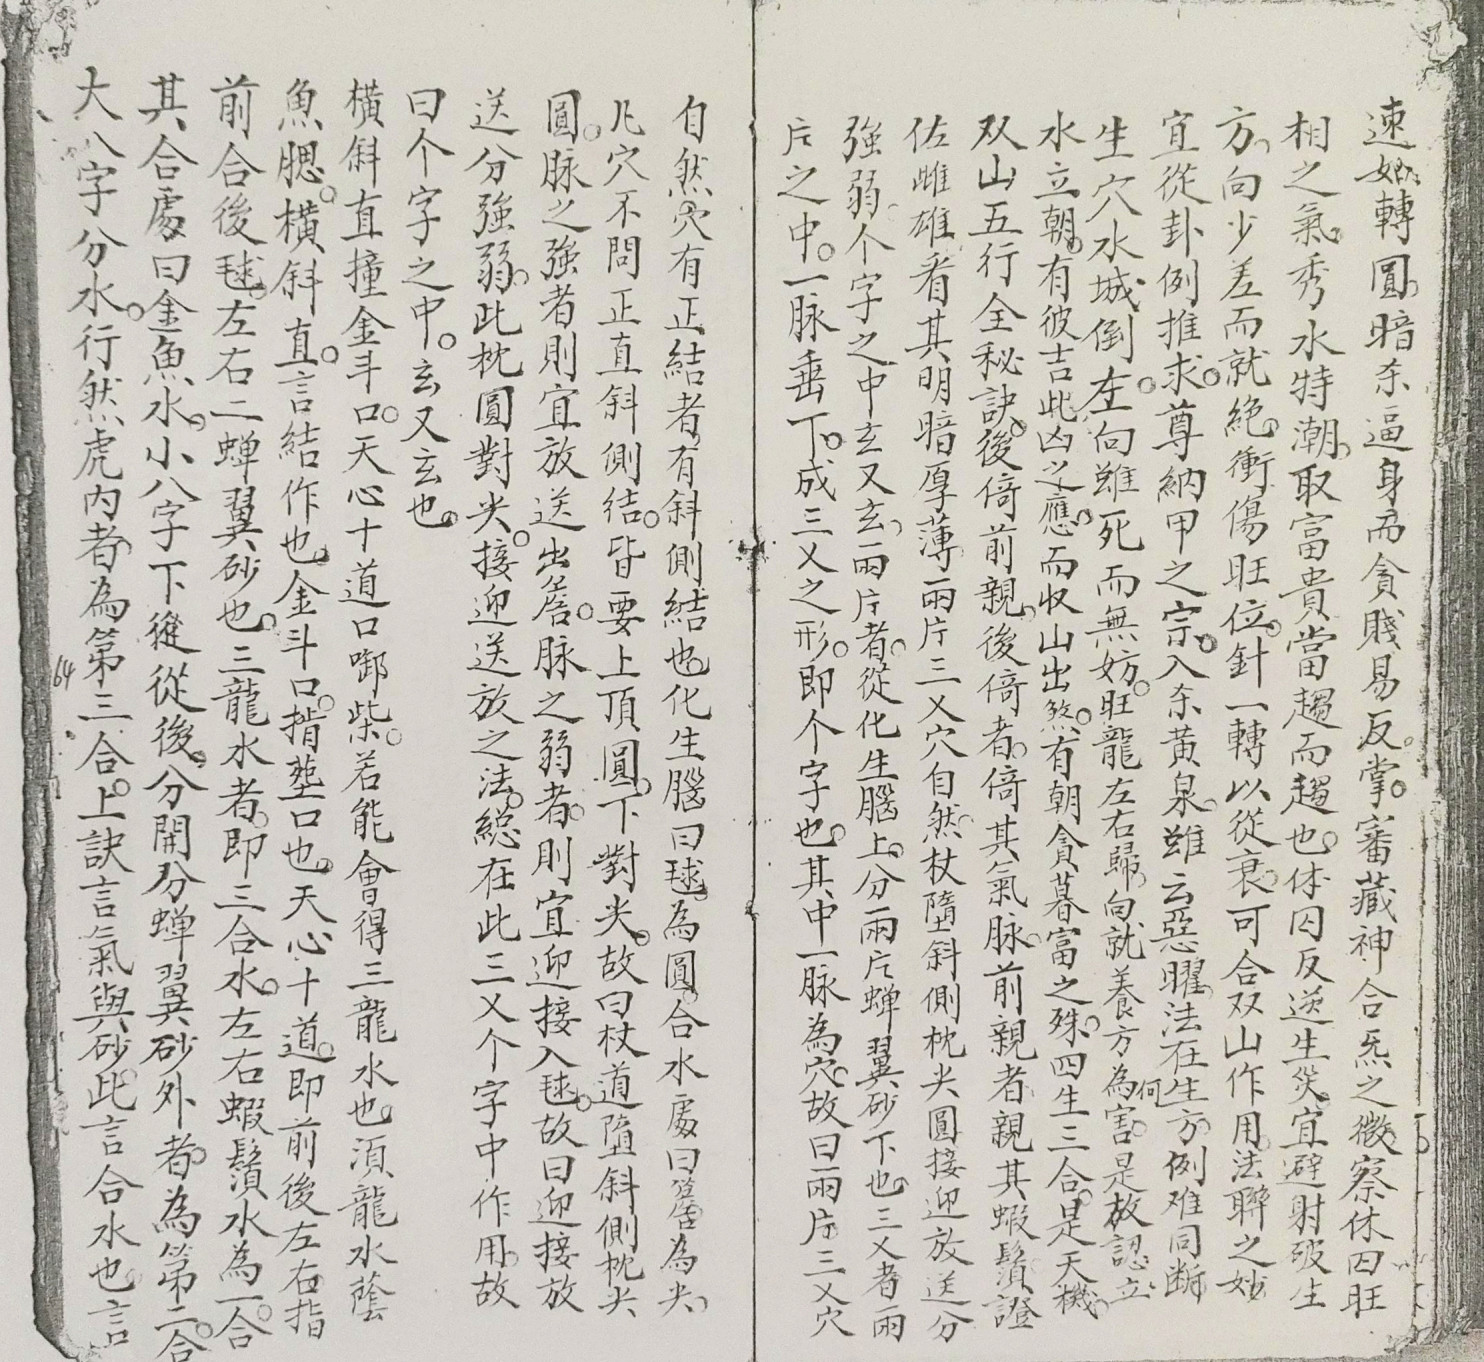 速如轉圓。暗來逼身而貪賤易反。掌。審藏神合炁之微。察休囚旺
相之氣。秀水特潮。取富貴當趨而趨也。休囚反逆生災。宜避射破生
方。向少差而就絶。衝傷旺位。針一轉以從衰。可合双山作用。法聯之妙
宜從卦例推求。尊納甲之宗。入來黃泉。雖云惡曜。法在生方。例难同断
生穴水城倒。左向雖死而無妨。旺龍左右歸。向就養方為何害。是故認立
水立朝。有彼吉此凶之應。而收山出煞。有朝貪暮富之殊。四生三合。是天機。
双山五行全秘訣。後倚前親。後倚者。倚其氣脉。前親者。親其蝦鬚。證
佐雌雄。看其明暗厚薄。兩片三乂穴自然。杖墮斜側枕尖圓。接迎放送分
強弱。个字之中玄又玄。兩片者。從化生腦上。分兩片蟬翼砂下也。三乂者。兩
片之中。一脉垂下。成三乂之形。即个字也。其中一脉為穴。故曰兩片三乂穴
自然。穴有正結者。有斜側結也。化生腦曰毬。為圓。合水處曰簷。為尖。
凡穴不問正直斜側結。皆要上頂圓。下對尖。故曰杖道墮斜側枕尖
圓。脉之強者。則宜放送出簷。脉之弱者。則宜迎接入毬。故曰迎接放
送分強弱。此枕圓對尖。接迎送放之法。総在此三乂个字中作用。故
曰个字之中。玄又玄也。
橫斜直撞金斗口。天心十道口啣柴。若能會得三龍水也。須龍水蔭
魚腮。橫斜直。言結作也。金斗口。指塟口也。天心十道。即前後左右。指
前合後毬。左右二蟬翼砂也。三龍水者。即三合水。左右蝦鬚水為一合。
其合處曰金魚水。小八字下。從後。分開分蟬翼砂外者。為第二合。
大八字分水。行然虎内者。為第三合。上訣言氣與砂。此言合水也。言
64